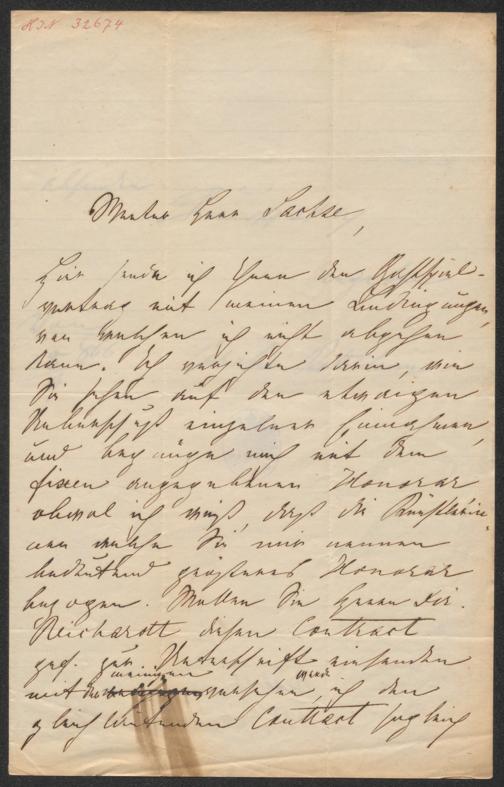 HIN 32674
Werter Herr Sachse,
Hier sende ich Ihnen den Gastspiel-
vertrag mit meinen Bedingungen,
von welchen ich nicht abgehen
kann. Ich verzichte darin, wie
Sie sehen auf den etwaigen
Ueberschuß einzelner Einnahmen,
und begnüge mich mit dem
fixen angegebenen Honorar
obwol ich weiß, daß die Künstlerin-
nen welche Sie mir nennen
bedeutend größeres Honorar
bezogen. Wollen Sie Herrn Dir.
Reichardt diesen Contract
gef. zur Unterschrift einsenden
meinigen werde
mit der versehen, ich den
gleichlautenden Contract sogleich